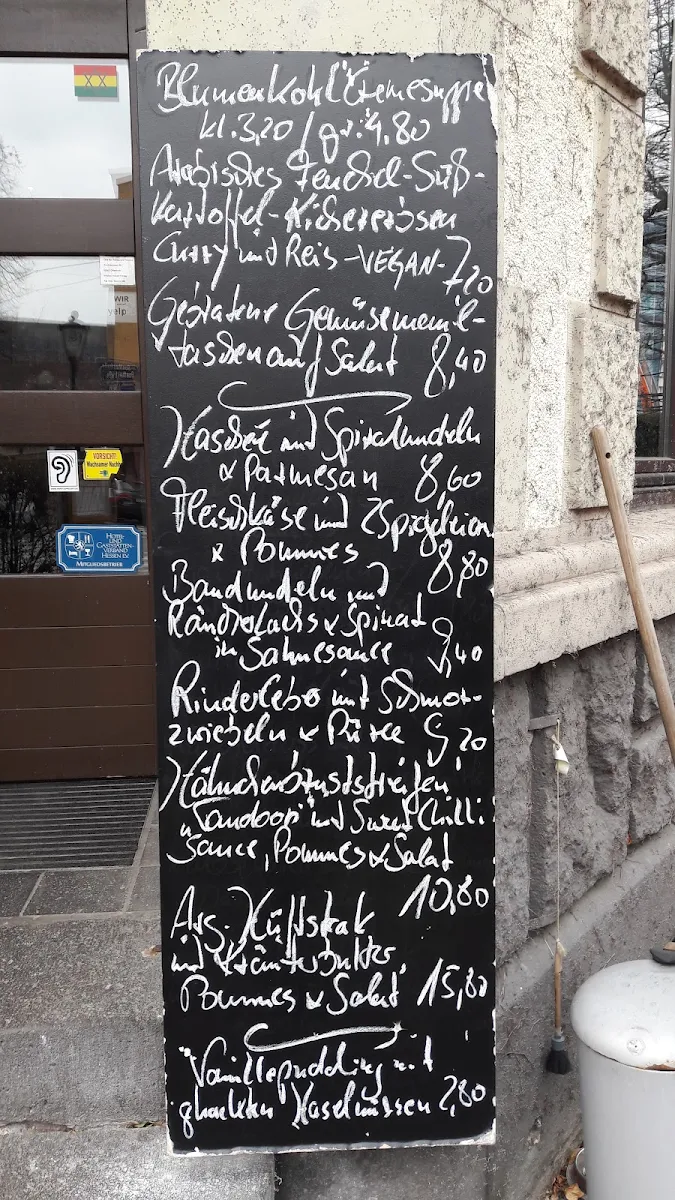 Blumenkohl Cremesuppe
kl. 3,20 / gr. 4.80
Arabisches Fenchel-Süß-
kartoffel-Kichererbsen
Curry und Reis -VEGAN- 7,20
Gebratene Gemüsemaul-
taschen auf Salat 8,40
Haschee und Spiralnudeln
& Parmesan 8,60
Fleischkäse mit 2 Spiegeleiern
& Pommes 8,80
Bandnudeln mit
Räucherlachs & Spinat
in Sahnesauce 9,40
Rinderleber mit Schmor-
zwiebeln & Püree 9,20
Hähnchenbruststreifen
"Tandoori" mit Sweet Chilli
Sauce, Pommes & Salat
10,80
Arg. Hüftsteak
mit Kräuterbutter,
Pommes & Salat 15,80
Vanillepudding mit
gehackten Haselnüssen 2,80
WIR
yelp
VORSICHT!
HOTEL-
UND
GASTSTÄTTEN-
VERBAND
HESSEN E.V.
MITGLIEDSBETRIEB